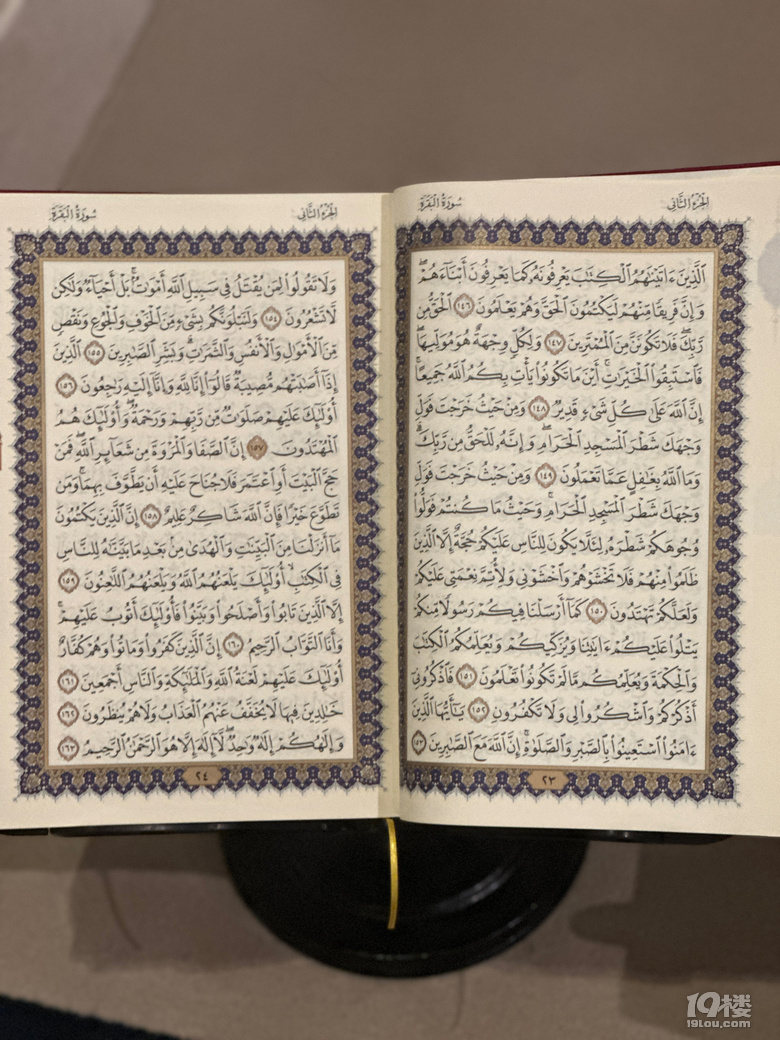 الجُزْءُ الثَّانِي
سُورَةُ البَقَرَةِ
ٱلَّذِينَ ءَاتَيْنَٰهُمُ ٱلْكِتَٰبَ يَعْرِفُونَهُۥ كَمَا يَعْرِفُونَ أَبْنَآءَهُمْۖ
وَإِنَّ فَرِيقًا مِّنْهُمْ لَيَكْتُمُونَ ٱلْحَقَّ وَهُمْ يَعْلَمُونَ ١٤٦ ٱلْحَقُّ مِن
رَّبِّكَ فَلَا تَكُونَنَّ مِنَ ٱلْمُمْتَرِينَ ١٤٧ وَلِكُلٍّ وِجْهَةٌ هُوَ مُوَلِّيهَاۖ
فَٱسْتَبِقُوا۟ ٱلْخَيْرَٰتِۚ أَيْنَ مَا تَكُونُوا۟ يَأْتِ بِكُمُ ٱللَّهُ جَمِيعًاۚ
إِنَّ ٱللَّهَ عَلَىٰ كُلِّ شَىْءٍ قَدِيرٌ ١٤٨ وَمِنْ حَيْثُ خَرَجْتَ فَوَلِّ
وَجْهَكَ شَطْرَ ٱلْمَسْجِدِ ٱلْحَرَامِۖ وَإِنَّهُۥ لَلْحَقُّ مِن رَّبِّكَۗ
وَمَا ٱللَّهُ بِغَٰفِلٍ عَمَّا تَعْمَلُونَ ١٤٩ وَمِنْ حَيْثُ خَرَجْتَ فَوَلِّ
وَجْهَكَ شَطْرَ ٱلْمَسْجِدِ ٱلْحَرَامِۚ وَحَيْثُ مَا كُنتُمْ فَوَلُّوا۟
وُجُوهَكُمْ شَطْرَهُۥ لِئَلَّا يَكُونَ لِلنَّاسِ عَلَيْكُمْ حُجَّةٌ إِلَّا ٱلَّذِينَ
ظَلَمُوا۟ مِنْهُمْ فَلَا تَخْشَوْهُمْ وَٱخْشَوْنِى وَلِأُتِمَّ نِعْمَتِى عَلَيْكُمْ
وَلَعَلَّكُمْ تَهْتَدُونَ ١٥٠ كَمَآ أَرْسَلْنَا فِيكُمْ رَسُولًا مِّنكُمْ
يَتْلُوا۟ عَلَيْكُمْ ءَايَٰتِنَا وَيُزَكِّيكُمْ وَيُعَلِّمُكُمُ ٱلْكِتَٰبَ
وَٱلْحِكْمَةَ وَيُعَلِّمُكُم مَّا لَمْ تَكُونُوا۟ تَعْلَمُونَ ١٥١ فَٱذْكُرُونِىٓ
أَذْكُرْكُمْ وَٱشْكُرُوا۟ لِى وَلَا تَكْفُرُونِ ١٥٢ يَٰٓأَيُّهَا ٱلَّذِينَ
ءَامَنُوا۟ ٱسْتَعِينُوا۟ بِٱلصَّبْرِ وَٱلصَّلَوٰةِۚ إِنَّ ٱللَّهَ مَعَ ٱلصَّٰبِرِينَ ١٥٣
٢٣
الجُزْءُ الثَّانِي
سُورَةُ البَقَرَةِ
وَلَا تَقُولُوا۟ لِمَن يُقْتَلُ فِى سَبِيلِ ٱللَّهِ أَمْوَٰتٌۢۚ بَلْ أَحْيَآءٌ وَلَٰكِن
لَّا تَشْعُرُونَ ١٥٤ وَلَنَبْلُوَنَّكُم بِشَىْءٍ مِّنَ ٱلْخَوْفِ وَٱلْجُوعِ وَنَقْصٍ
مِّنَ ٱلْأَمْوَٰلِ وَٱلْأَنفُسِ وَٱلثَّمَرَٰتِۗ وَبَشِّرِ ٱلصَّٰبِرِينَ ١٥٥ ٱلَّذِينَ
إِذَآ أَصَٰبَتْهُم مُّصِيبَةٌ قَالُوٓا۟ إِنَّا لِلَّهِ وَإِنَّآ إِلَيْهِ رَٰجِعُونَ ١٥٦
أُو۟لَٰٓئِكَ عَلَيْهِمْ صَلَوَٰتٌ مِّن رَّبِّهِمْ وَرَحْمَةٌۖ وَأُو۟لَٰٓئِكَ هُمُ
ٱلْمُهْتَدُونَ ١٥٧ إِنَّ ٱلصَّفَا وَٱلْمَرْوَةَ مِن شَعَآئِرِ ٱللَّهِۖ فَمَنْ
حَجَّ ٱلْبَيْتَ أَوِ ٱعْتَمَرَ فَلَا جُنَاحَ عَلَيْهِ أَن يَطَّوَّفَ بِهِمَاۚ وَمَن
تَطَوَّعَ خَيْرًا فَإِنَّ ٱللَّهَ شَاكِرٌ عَلِيمٌ ١٥٨ إِنَّ ٱلَّذِينَ يَكْتُمُونَ
مَآ أَنزَلْنَا مِنَ ٱلْبَيِّنَٰتِ وَٱلْهُدَىٰ مِنۢ بَعْدِ مَا بَيَّنَّٰهُ لِلنَّاسِ
فِى ٱلْكِتَٰبِۙ أُو۟لَٰٓئِكَ يَلْعَنُهُمُ ٱللَّهُ وَيَلْعَنُهُمُ ٱللَّٰعِنُونَ ١٥٩
إِلَّا ٱلَّذِينَ تَابُوا۟ وَأَصْلَحُوا۟ وَبَيَّنُوا۟ فَأُو۟لَٰٓئِكَ أَتُوبُ عَلَيْهِمْۚ
وَأَنَا ٱلتَّوَّابُ ٱلرَّحِيمُ ١٦٠ إِنَّ ٱلَّذِينَ كَفَرُوا۟ وَمَاتُوا۟ وَهُمْ كُفَّارٌ
أُو۟لَٰٓئِكَ عَلَيْهِمْ لَعْنَةُ ٱللَّهِ وَٱلْمَلَٰٓئِكَةِ وَٱلنَّاسِ أَجْمَعِينَ ١٦١
خَٰلِدِينَ فِيهَا لَا يُخَفَّفُ عَنْهُمُ ٱلْعَذَابُ وَلَا هُمْ يُنظَرُونَ ١٦٢
وَإِلَٰهُكُمْ إِلَٰهٌ وَٰحِدٌۖ لَّآ إِلَٰهَ إِلَّا هُوَ ٱلرَّحْمَٰنُ ٱلرَّحِيمُ ١٦٣
٢٤
19楼
19lou.com